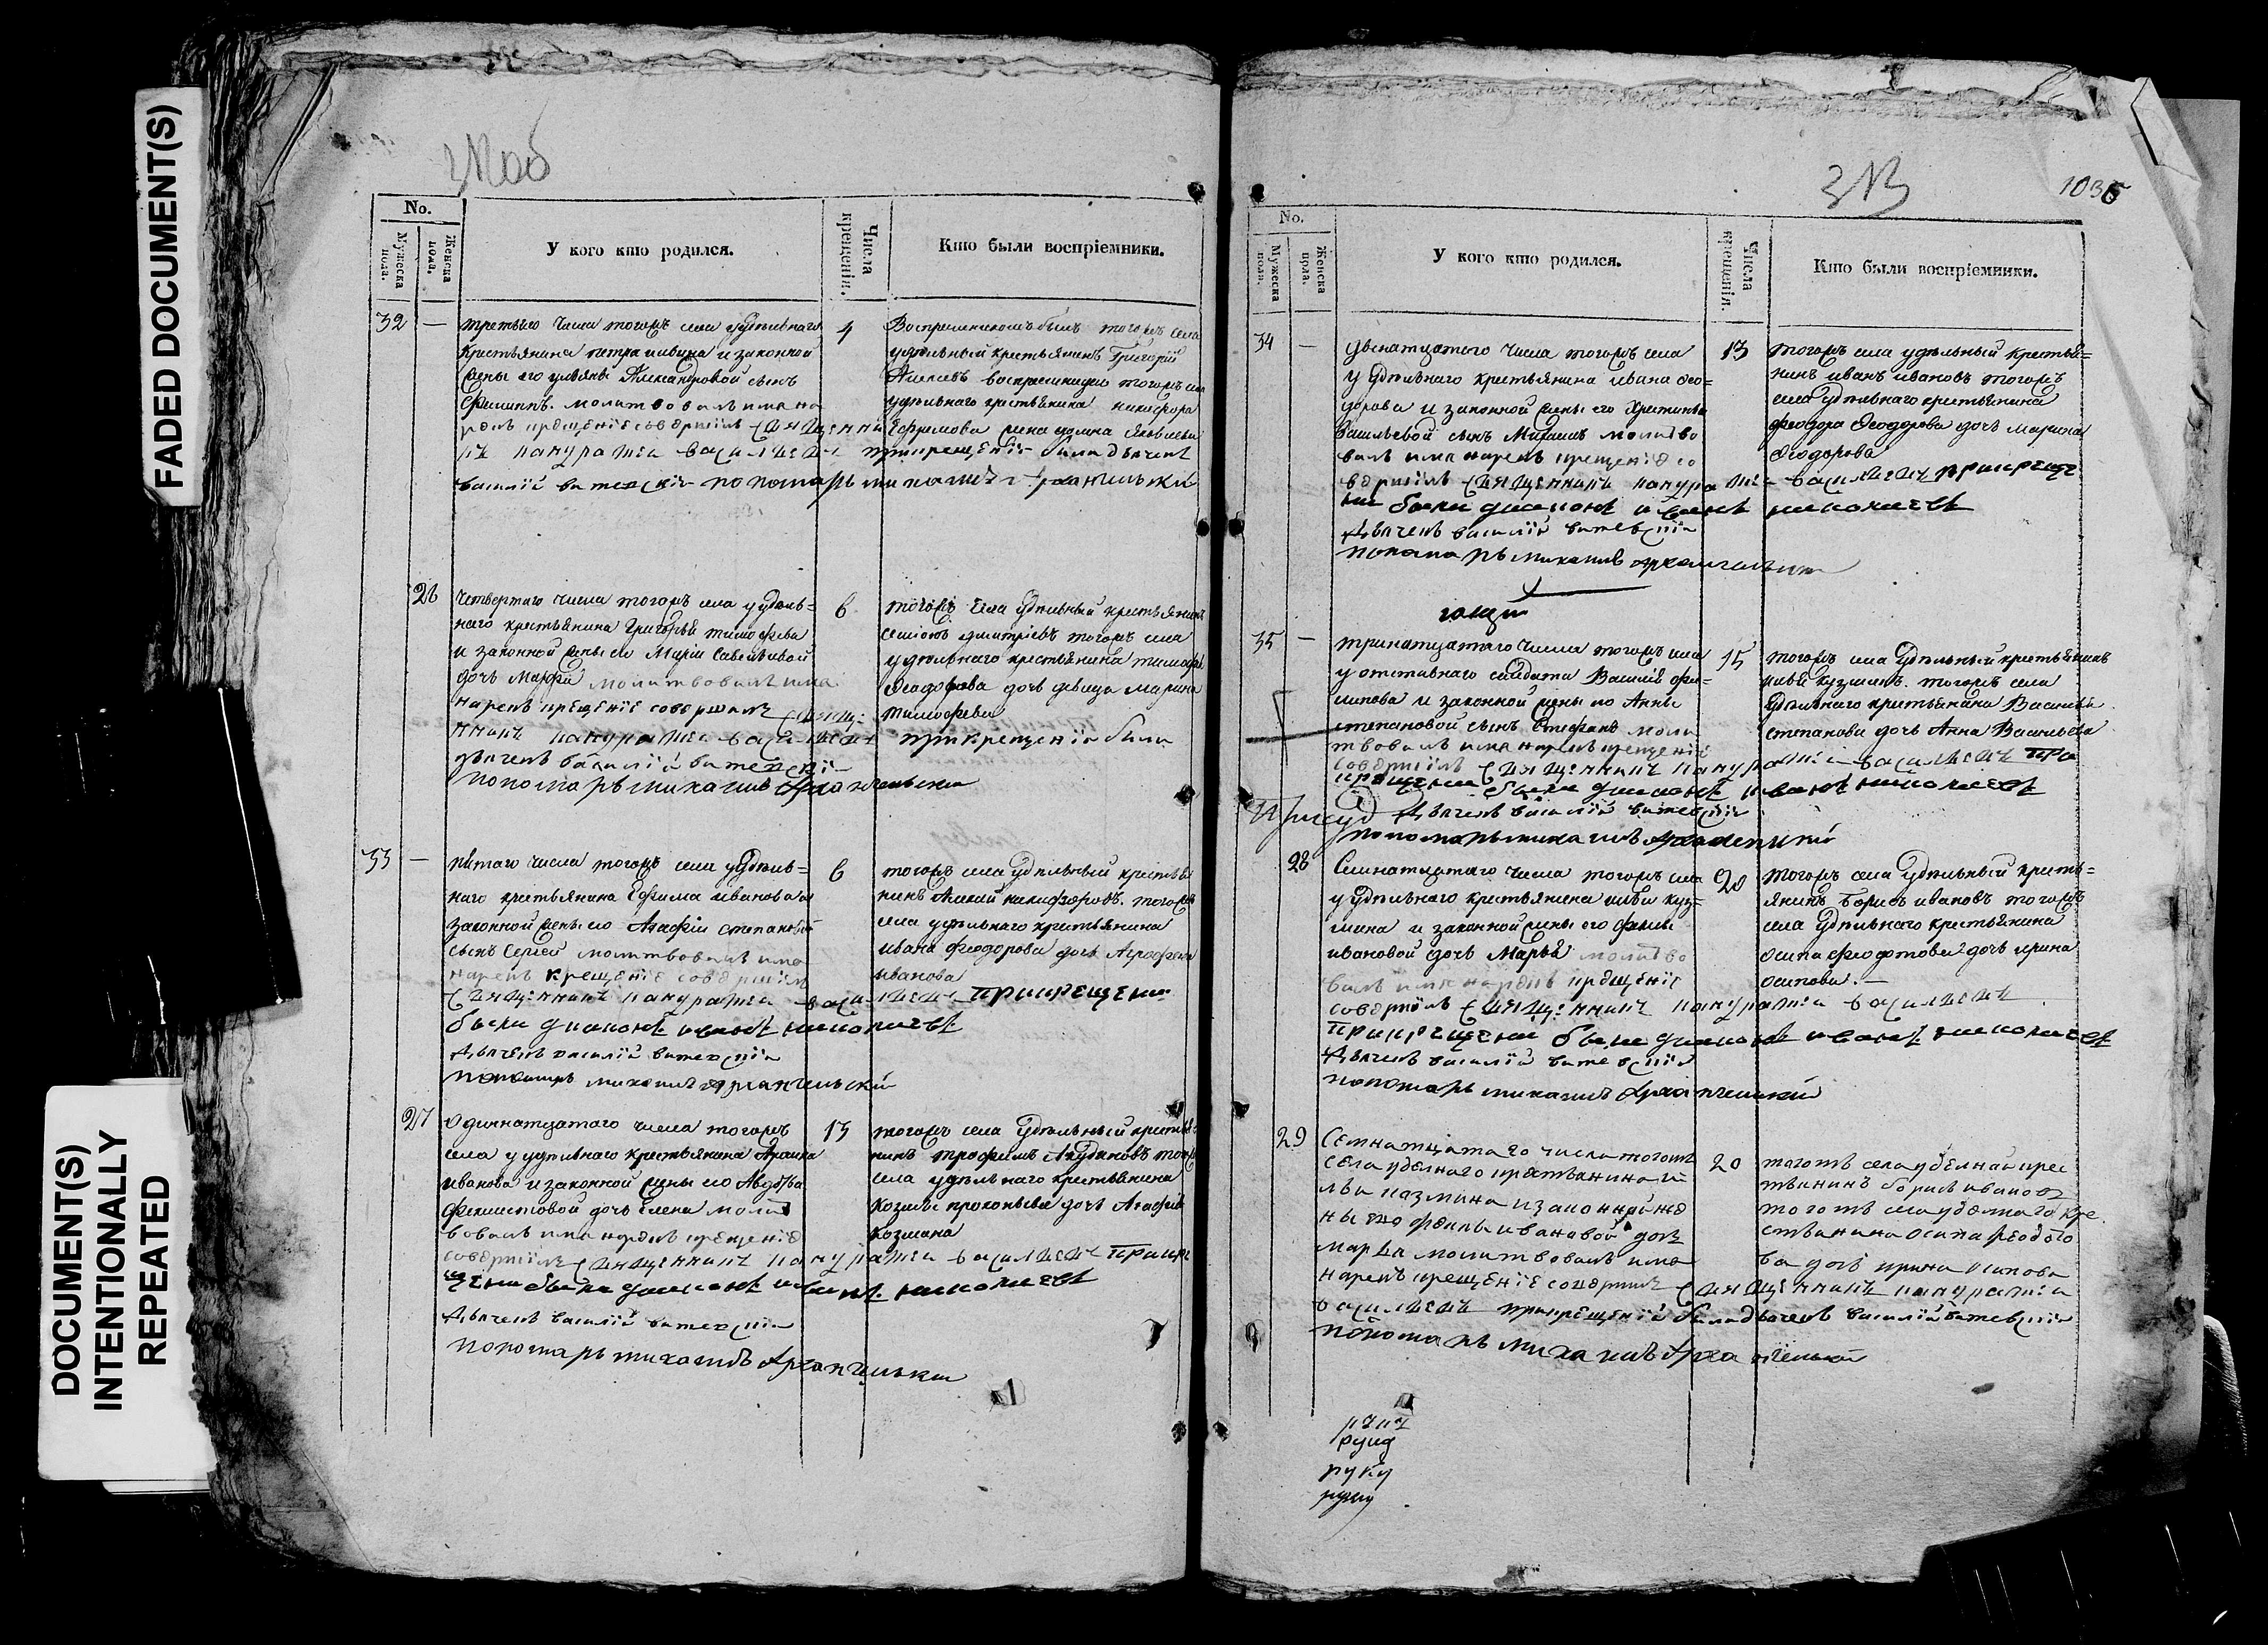 FADED DOCUMENT(S)
DOCUMENT(S)
INTENTIONALLY
REPEATED
No.
Мужеска пола.
Женска пола.
У кого кто родился.
Числа крещенія.
Кто были воспріемники.
32 —
третьяго числа тогожъ села уудѣльнаго
крестьянина петра ильина и законной
жены его ульяны Александровой сынъ
Филиппъ. молитвовалъ имя на
рекъ крещеніе совершилъ священни
къ панкратій васильевъ
василій витевскій пономарь михаилъ Архангельскій
4
Воспріемникомъ былъ тогожъ села
удѣльный крестьянинъ Григорій
Алексѣевъ воспріемницею тогожъ села
удѣльнаго крестьянина никифора
Ефремова жена домна яковлева
прикрещеніи были дьячекъ
26
четвертаго числа тогожъ села уудѣль=
наго крестьянина Григорья тимофеева
и законной жены его Маріи Савельевой
дочь Марфа молитвовалъ имя
нарекъ крещеніе совершилъ свяще
нникъ панкратій васильевъ
дьячекъ василій витевскій
пономарь михаилъ Архангельскій
6
тогожъ села удѣльный крестьянинъ
семіонъ дмитріевъ тогожъ села
удѣльнаго крестьянина тимофея
Феодорова дочь девица марина
тимофеева
прикрещеніи были
33 —
пятаго числа тогожъ села уудѣль=
наго крестьянина Ефима иванова и
законной жены его Агафіи степановой
сынъ Сергей молитвовалъ имя
нарекъ крещеніе совершилъ
священникъ панкратій васильевъ прикрещеніи
были диаконъ иванъ николаевъ
дьячекъ василій витевскій
пономарь михаилъ Архангельскій
6
тогожъ села удѣльный крестья
нинъ никифоровъ. тогожъ
села удѣльнаго крестьянина
ивана феодорова дочь Аграфена
иванова
27
Одиннатцатого числа тогожъ
села уудѣльнаго крестьянина
иванова и законной жены его Авдотьи
феклистовой дочь Елена молит
вовалъ имя нарекъ крещеніе
совершилъ священникъ панкратій васильевъ прикре
щеніи были диаконъ иванъ николаевъ
дьячекъ василій витевскій
пономарь михаилъ Архангельскій
13
тогожъ села удѣльный крестья
нинъ трофимъ тогожъ
села удѣльнаго крестьянина
козмы прокопьева дочь Агафія
козмина
1036
No.
Мужеска пола.
Женска пола.
У кого кто родился.
Числа крещенія.
Кто были воспріемники.
34 —
двенатцатого числа тогожъ села
у удѣльнаго крестьянина ивана Фео=
дорова и законной жены его Христины
Васильевой сынъ Михаилъ молитво
валъ имя нарекъ крещеніе со
вершилъ священникъ панкратій васильевъ прикреще
ніи были диаконъ иванъ николаевъ
дьячекъ василій витевскій
пономарь михаилъ Архангельскій
13
тогожъ села удѣльный крестья=
нинъ иванъ ивановъ тогожъ
села удѣльнаго крестьянина
феодора Феодорова дочь марина
Феодорова
35 —
тринатцатаго числа тогожъ села
у отставнаго салдата Василія фи=
липова и законной жены его Анны
степановой сынъ Стефанъ моли
твовалъ имя нарекъ крещеніе
совершилъ священникъ панкратій васильевъ при
крещеніи были диаконъ иванъ николаевъ
дьячекъ василій витевскій
пономарь михаилъ Архангельскій
15
тогожъ села удѣльный крестьянинъ
илья кузминъ. тогожъ села
удѣльнаго крестьянина Василья
степанова дочь Анна Васильева
28
Семнатцатаго числа тогожъ села
у удѣльнаго крестьянина ильи куз=
мина и законной жены его феклы
ивановой дочь Марья молитво
валъ имя нарекъ крещеніе
совершилъ священникъ панкратій васильевъ
прикрещеніи были диаконъ иванъ николаевъ
дьячекъ василій витевскій
пономарь михаилъ Архангельскій
20
тогожъ села удѣльный кресть=
янинъ Борисъ ивановъ тогожъ
села удѣльнаго крестьянина
осипа федотова дочь ирина
осипова. —
29
Семнатцатаго числа тогожъ
села уделнаго крестьянина и
льи казмина и законной же
ны его феклы ивановой дочь
марья молитвовалъ имя
нарекъ крещеніе совершилъ священникъ панкратій
васильевъ прикрещеніи были дьячекъ василій витевскій
пономарь михаилъ Архангельскій
20
тогожъ села уделнай крес
тьянинъ борисъ ивановъ
тогожъ села уделнаго кре
стьянина осипа феодото
ва дочь ирина осипова
руку